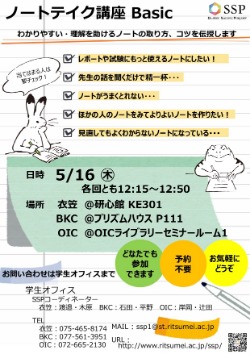 ノートテイク講座 Basic
SSP
わかりやすい・理解を助けるノートの取り方、コツを伝授します
当てはまる人は
要チェック!
レポートや試験にもっと使えるノートにしたい!
先生の話を聞くだけで精一杯・・・
ノートがうまくとれない・・・
ほかの人のノートをみてよりよいノートを作りたい!
見直してもよくわからないノートになっている・・・
日時 5/16 木
各回とも12:15~12:50
場所 衣笠 @研心館 KE301
BKC @プリズムハウス P111
OIC @OICライブラリーセミナールーム1
どなたでも
参加
できます
予約
不要
お気軽に
どうぞ
お問い合わせは学生オフィスまで
学生オフィス
SSPコーディネーター
衣笠:渡邉・木原 BKC:石田・平野 OIC:岸岡・辻田
TEL
衣笠:075-465-8174
BKC:077-561-3951
OIC:072-665-2130
MAIL:ssp1@st.ritsumei.ac.jp
URL:
http://www.ritsumei.ac.jp/ssp/